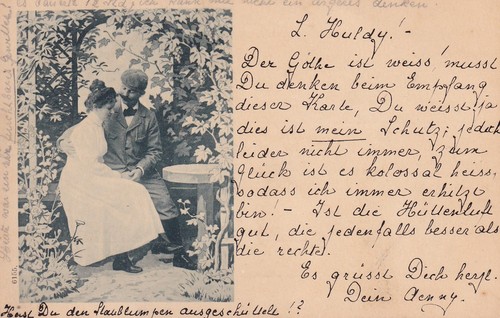 L. Huldy! -
Der Göthe ist weiss! musst
Du denken beim Empfang
dieser Karte, Du weisst ja
dies ist mein Schutz; jedoch
leider nicht immer, zum
Glück ist es kolossal heiss,
sodass ich immer erhitzt
bin! - Ist die Hüttenluft
gut, die jedenfalls besser als
die rechte.
Es grüsst Dich herzl.
Dein Aenny.
Hast Du den Staublumpen ausgeschüttelt!?
6105.